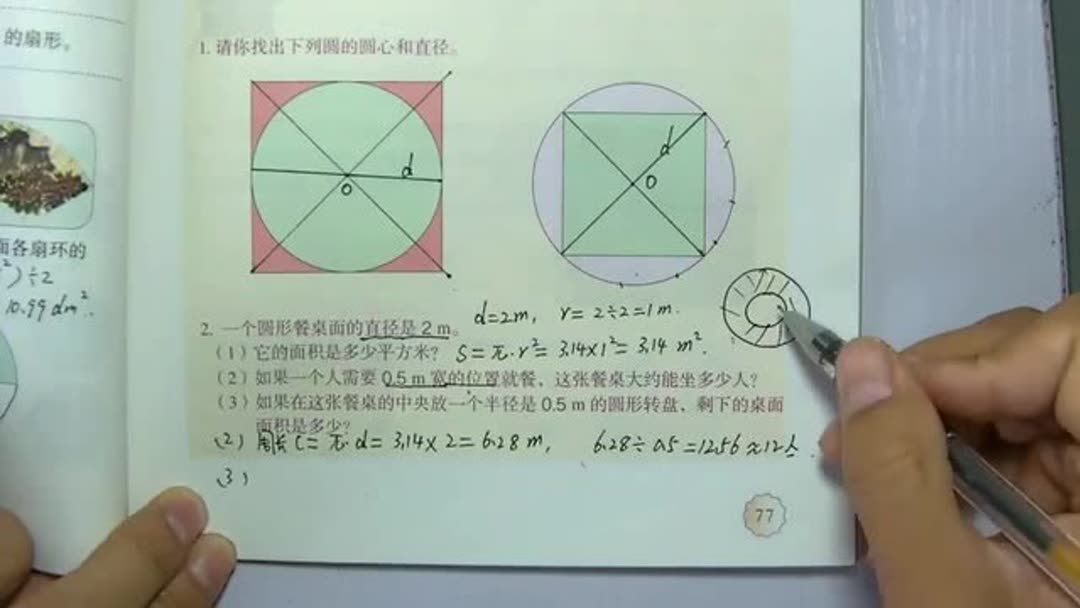 的扇形。
面各扇环的
²）÷2
10.99 dm².
1. 请你找出下列圆的圆心和直径。
d
O
d
O
2. 一个圆形餐桌面的直径是 2 m。
d=2m, r=2÷2=1m.
（1）它的面积是多少平方米？
S=π·r²=3.14×1²=3.14 m².
（2）如果一个人需要 0.5 m 宽的位置就餐，这张餐桌大约能坐多少人？
（3）如果在这张餐桌的中央放一个半径是 0.5 m 的圆形转盘，剩下的桌面
面积是多少？
(2) 周长 C=π·d=3.14×2=6.28 m, 6.28÷0.5=12.56≈12人.
(3)
77